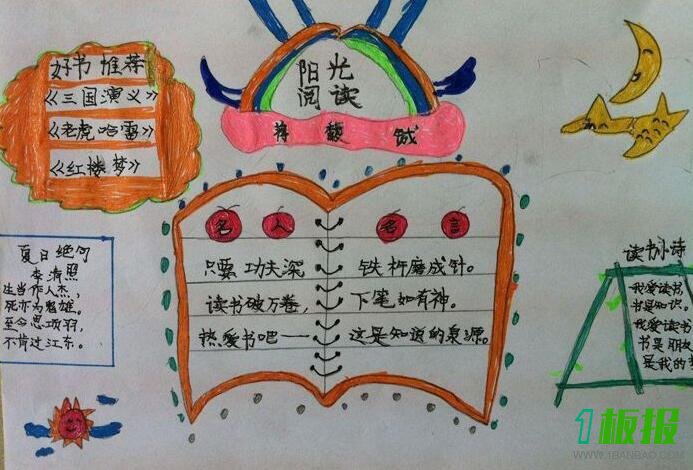 阳光
阅读
好书推荐
《三国演义》
《老虎哈雷》
《红楼梦》
名人 名言
只要功夫深 铁杵磨成针。
读书破万卷, 下笔如有神。
热爱书吧—— 这是知道的泉源。
夏日绝句
李清照
生当作人杰,
死亦为鬼雄。
至今思项羽,
不肯过江东。
读书小诗
我爱读书
书是知识。
我爱读书
书是朋
是我的
1板报
WWW.1BANBAO.COM